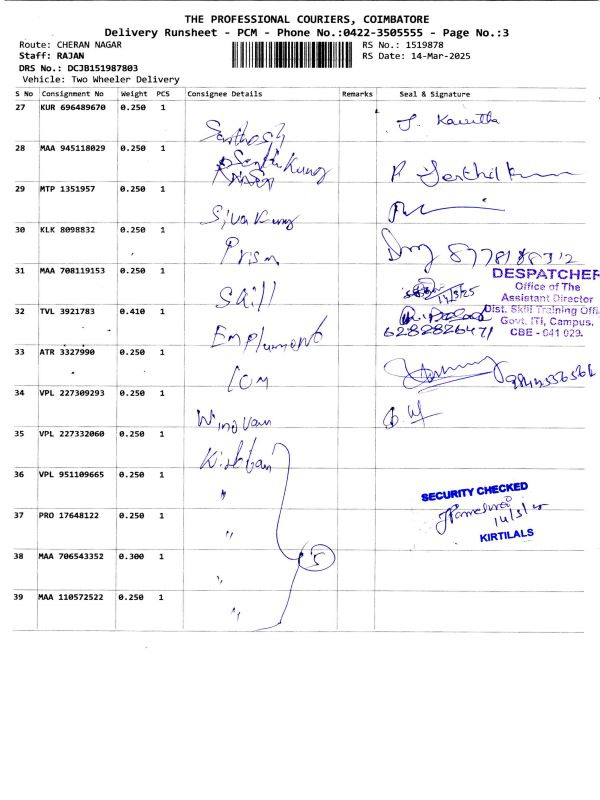 THE PROFESSIONAL COURIERS, COIMBATORE
Delivery Runsheet - PCM - Phone No.:0422-3505555 - Page No.:3
Route: CHERAN NAGAR
RS No.: 1519878
Staff: RAJAN
RS Date: 14-Mar-2025
DRS No.: DCJB151987803
Vehicle: Two Wheeler Delivery
S No Consignment No Weight PCS Consignee Details Remarks Seal & Signature
27 KUR 696489670 0.250 1 Santhosh J. Kavitha
28 MAA 945118029 0.250 1 Senthil Kumar
29 MTP 1351957 0.250 1 Siva Kumar
30 KLK 8098832 0.250 1 Prism
31 MAA 708119153 0.250 1 Skill 14/3/25
DESPATCHER
Office of The
Assistant Director
Dist. Skill Training Offi
Govt. ITI, Campus,
CBE - 641 029.
32 TVL 3921783 0.410 1 6282826471
33 ATR 3327990 0.250 1 Com
34 VPL 227309293 0.250 1
35 VPL 227332060 0.250 1
36 VPL 951109665 0.250 1 "
SECURITY CHECKED
14/3/25
KIRTILALS
37 PRO 17648122 0.250 1 "
38 MAA 706543352 0.300 1 " 5
39 MAA 110572522 0.250 1 "